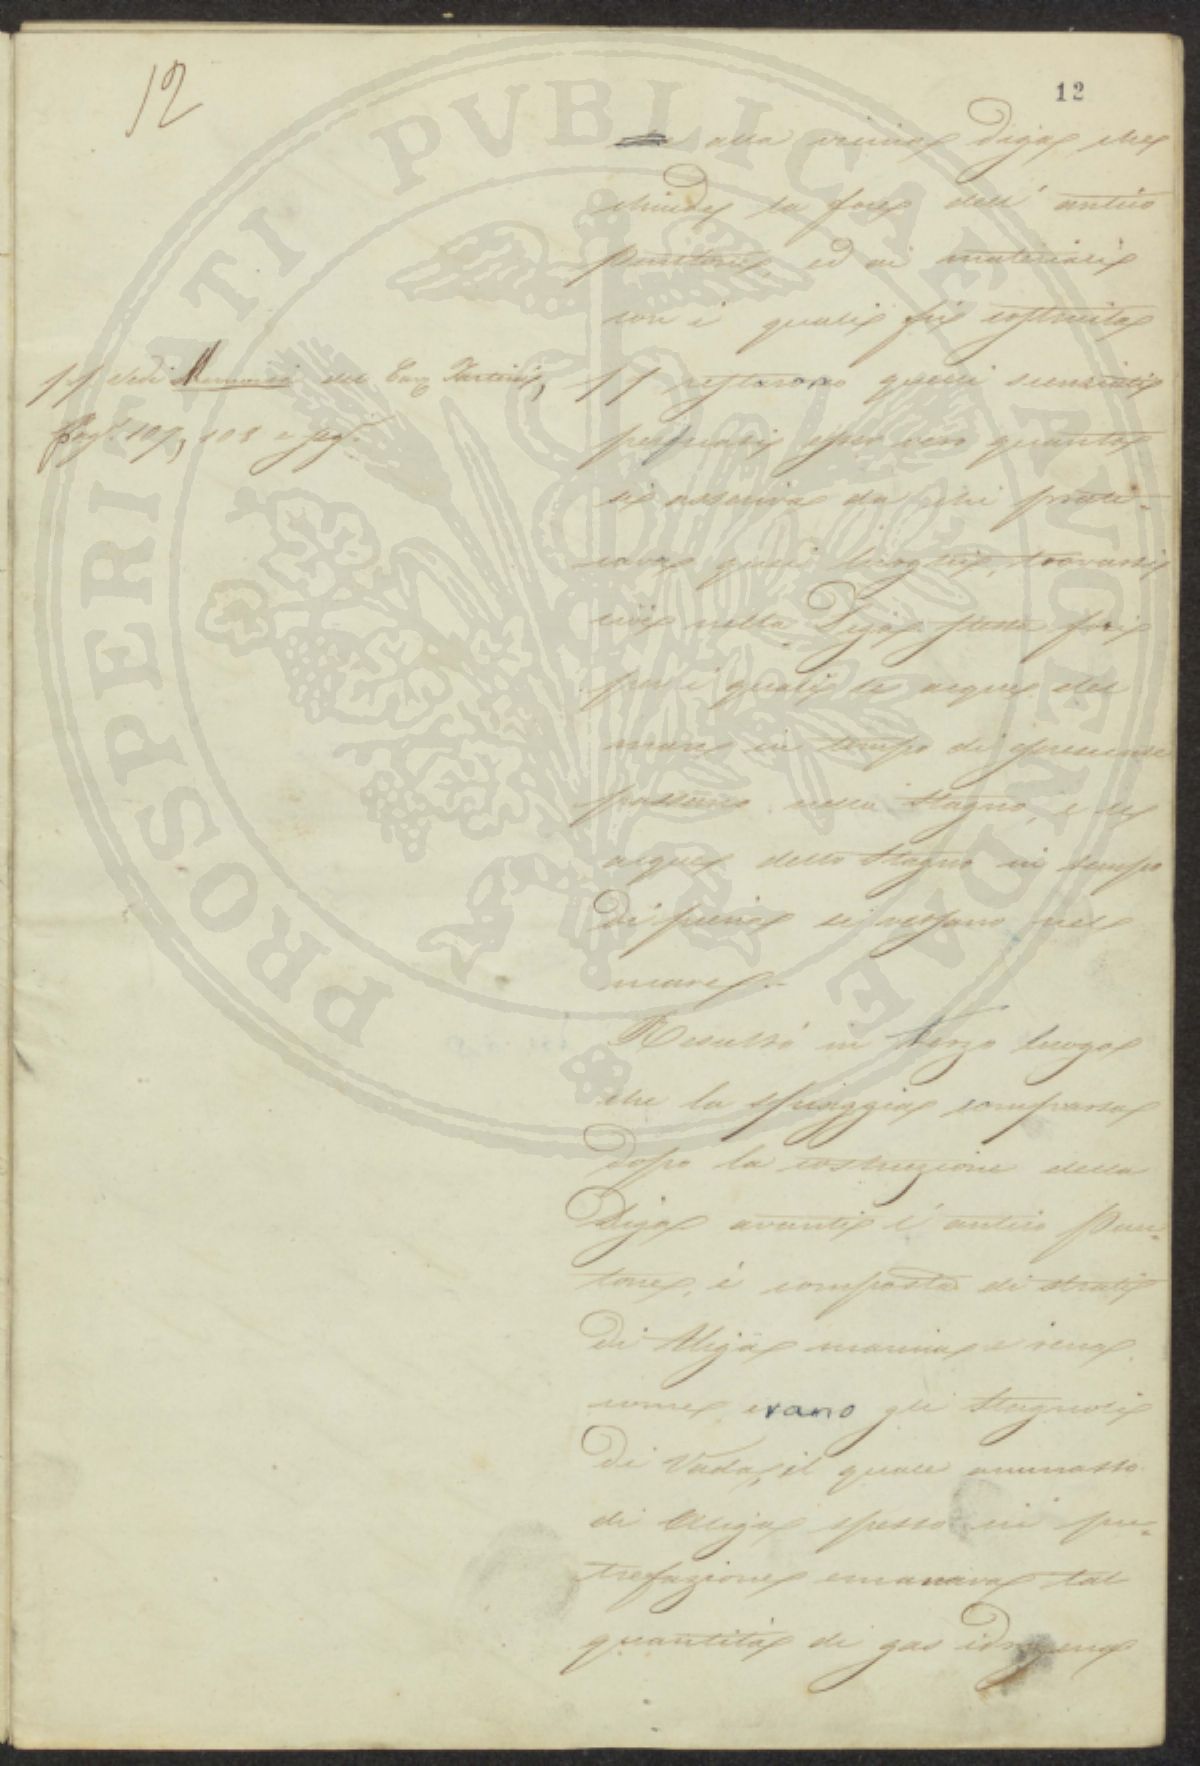 12
12
alla vicina Diga che
chiude la foce dell' antico
Pantone, ed ai materiali
con i quali fu costruita
( ) restarono quelli scenziati
persuasi esser vero quanto
si asseriva da chi prati-
cava quei luoghi, trovarsi
cioè nella Diga stessa fori
per i quali le acque del
mare in tempo di
passano nello Stagno, e le
acque dello Stagno in tempo
di piena si versano nel
mare.-
Resultò in terzo luogo
che la spiaggia comparsa
dopo la costruzione della
Diga avanti l' antico Pan-
tone, è composta di strati
di Aliga marina e rena
come erano gli Stagnoli
di Vada, il quale ammasso
di Aliga spesso in pu-
trefazione emanava tal
quantità di gas idrogeno
( ) Vedi Memorie del Cav Tartini,
Pag. 107, 108 e seg.
PROSPERITATI PVBLICAE AVGENDAE